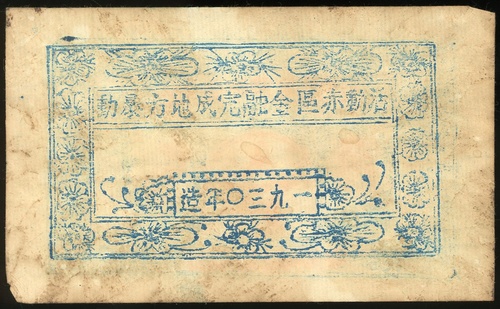 活動赤區金融完成地方暴動
一九三〇年造